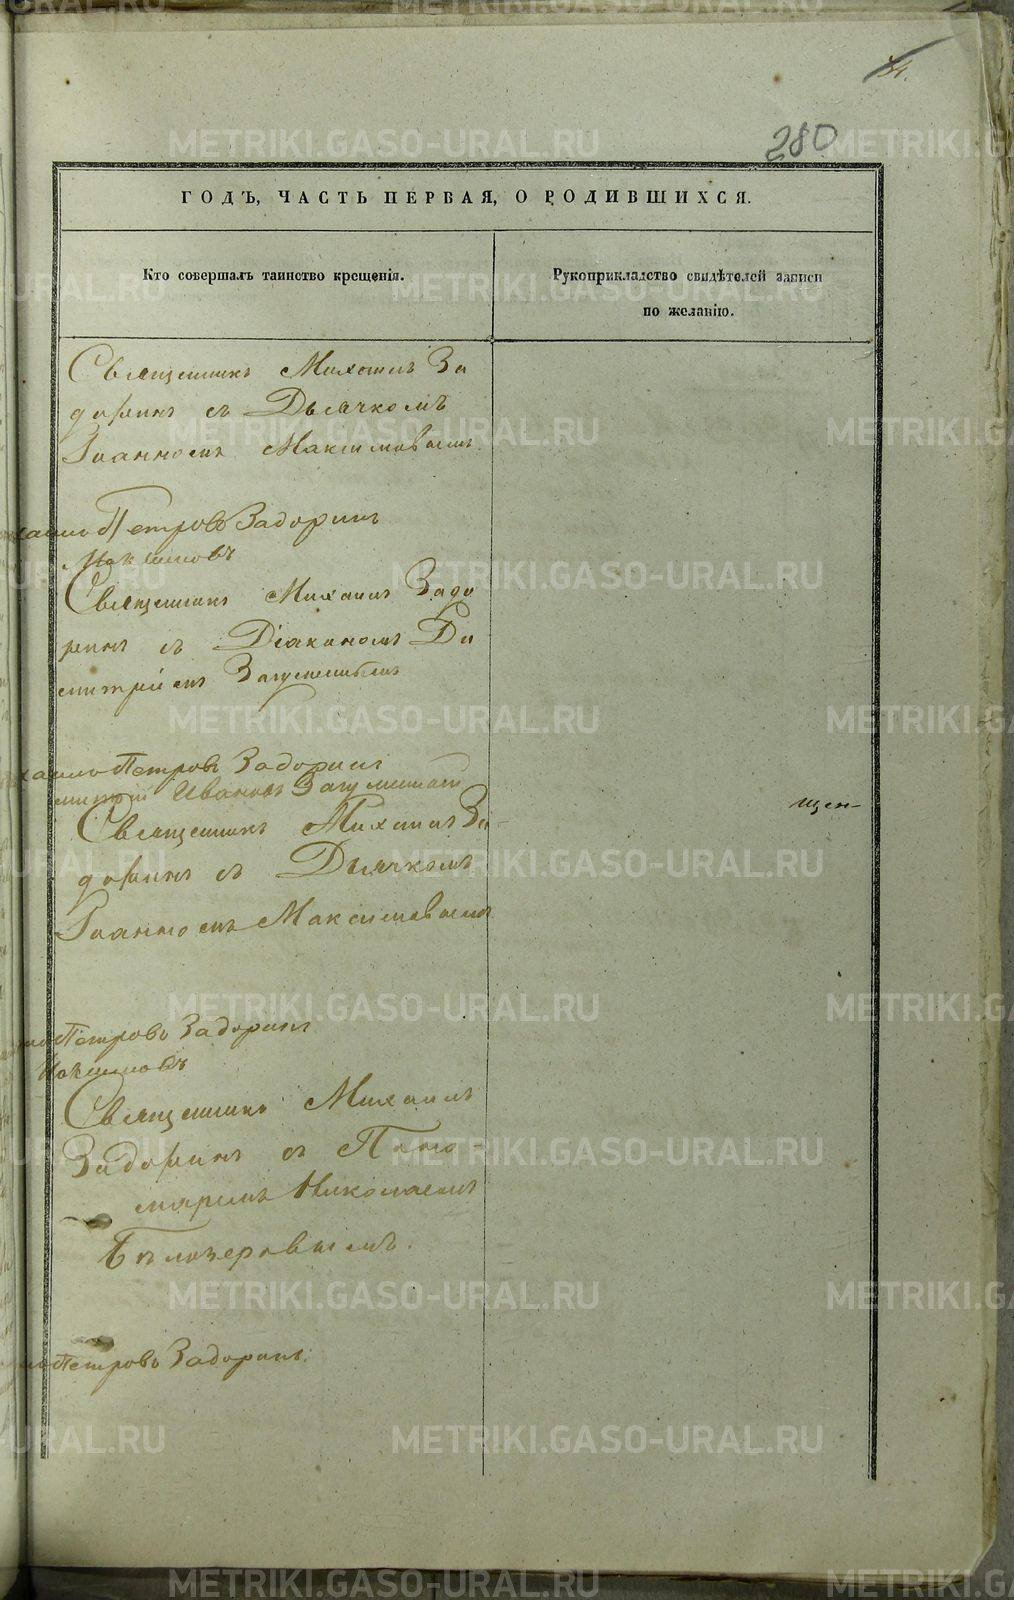 34.
280
ГОДЪ, ЧАСТЬ ПЕРВАЯ, О РОДИВШИХСЯ.
Кто совершалъ таинство крещенія.
Рукоприкладство свидѣтелей записи
по желанію.
Священникъ Михаилъ За
доринъ съ Дьячкомъ
Іоанномъ Максимовымъ
хаило Петровъ Задоринъ
Максимовъ
Священникъ Михаилъ Задо
ринъ съ Діакономъ Ди
митріемъ Загуменнымъ
хаило Петровъ Задоринъ
митрій Ивановъ
Священникъ Михаилъ За-
доринъ съ Дьячкомъ
Іоанномъ Максимовымъ
щен-
ило Петровъ Задоринъ
Максимовъ
Священникъ Михаилъ
Задоринъ съ Поно-
маремъ Николаемъ
Бѣлозеровымъ.
ило Петровъ Задоринъ.
METRIKI.GASO-URAL.RU